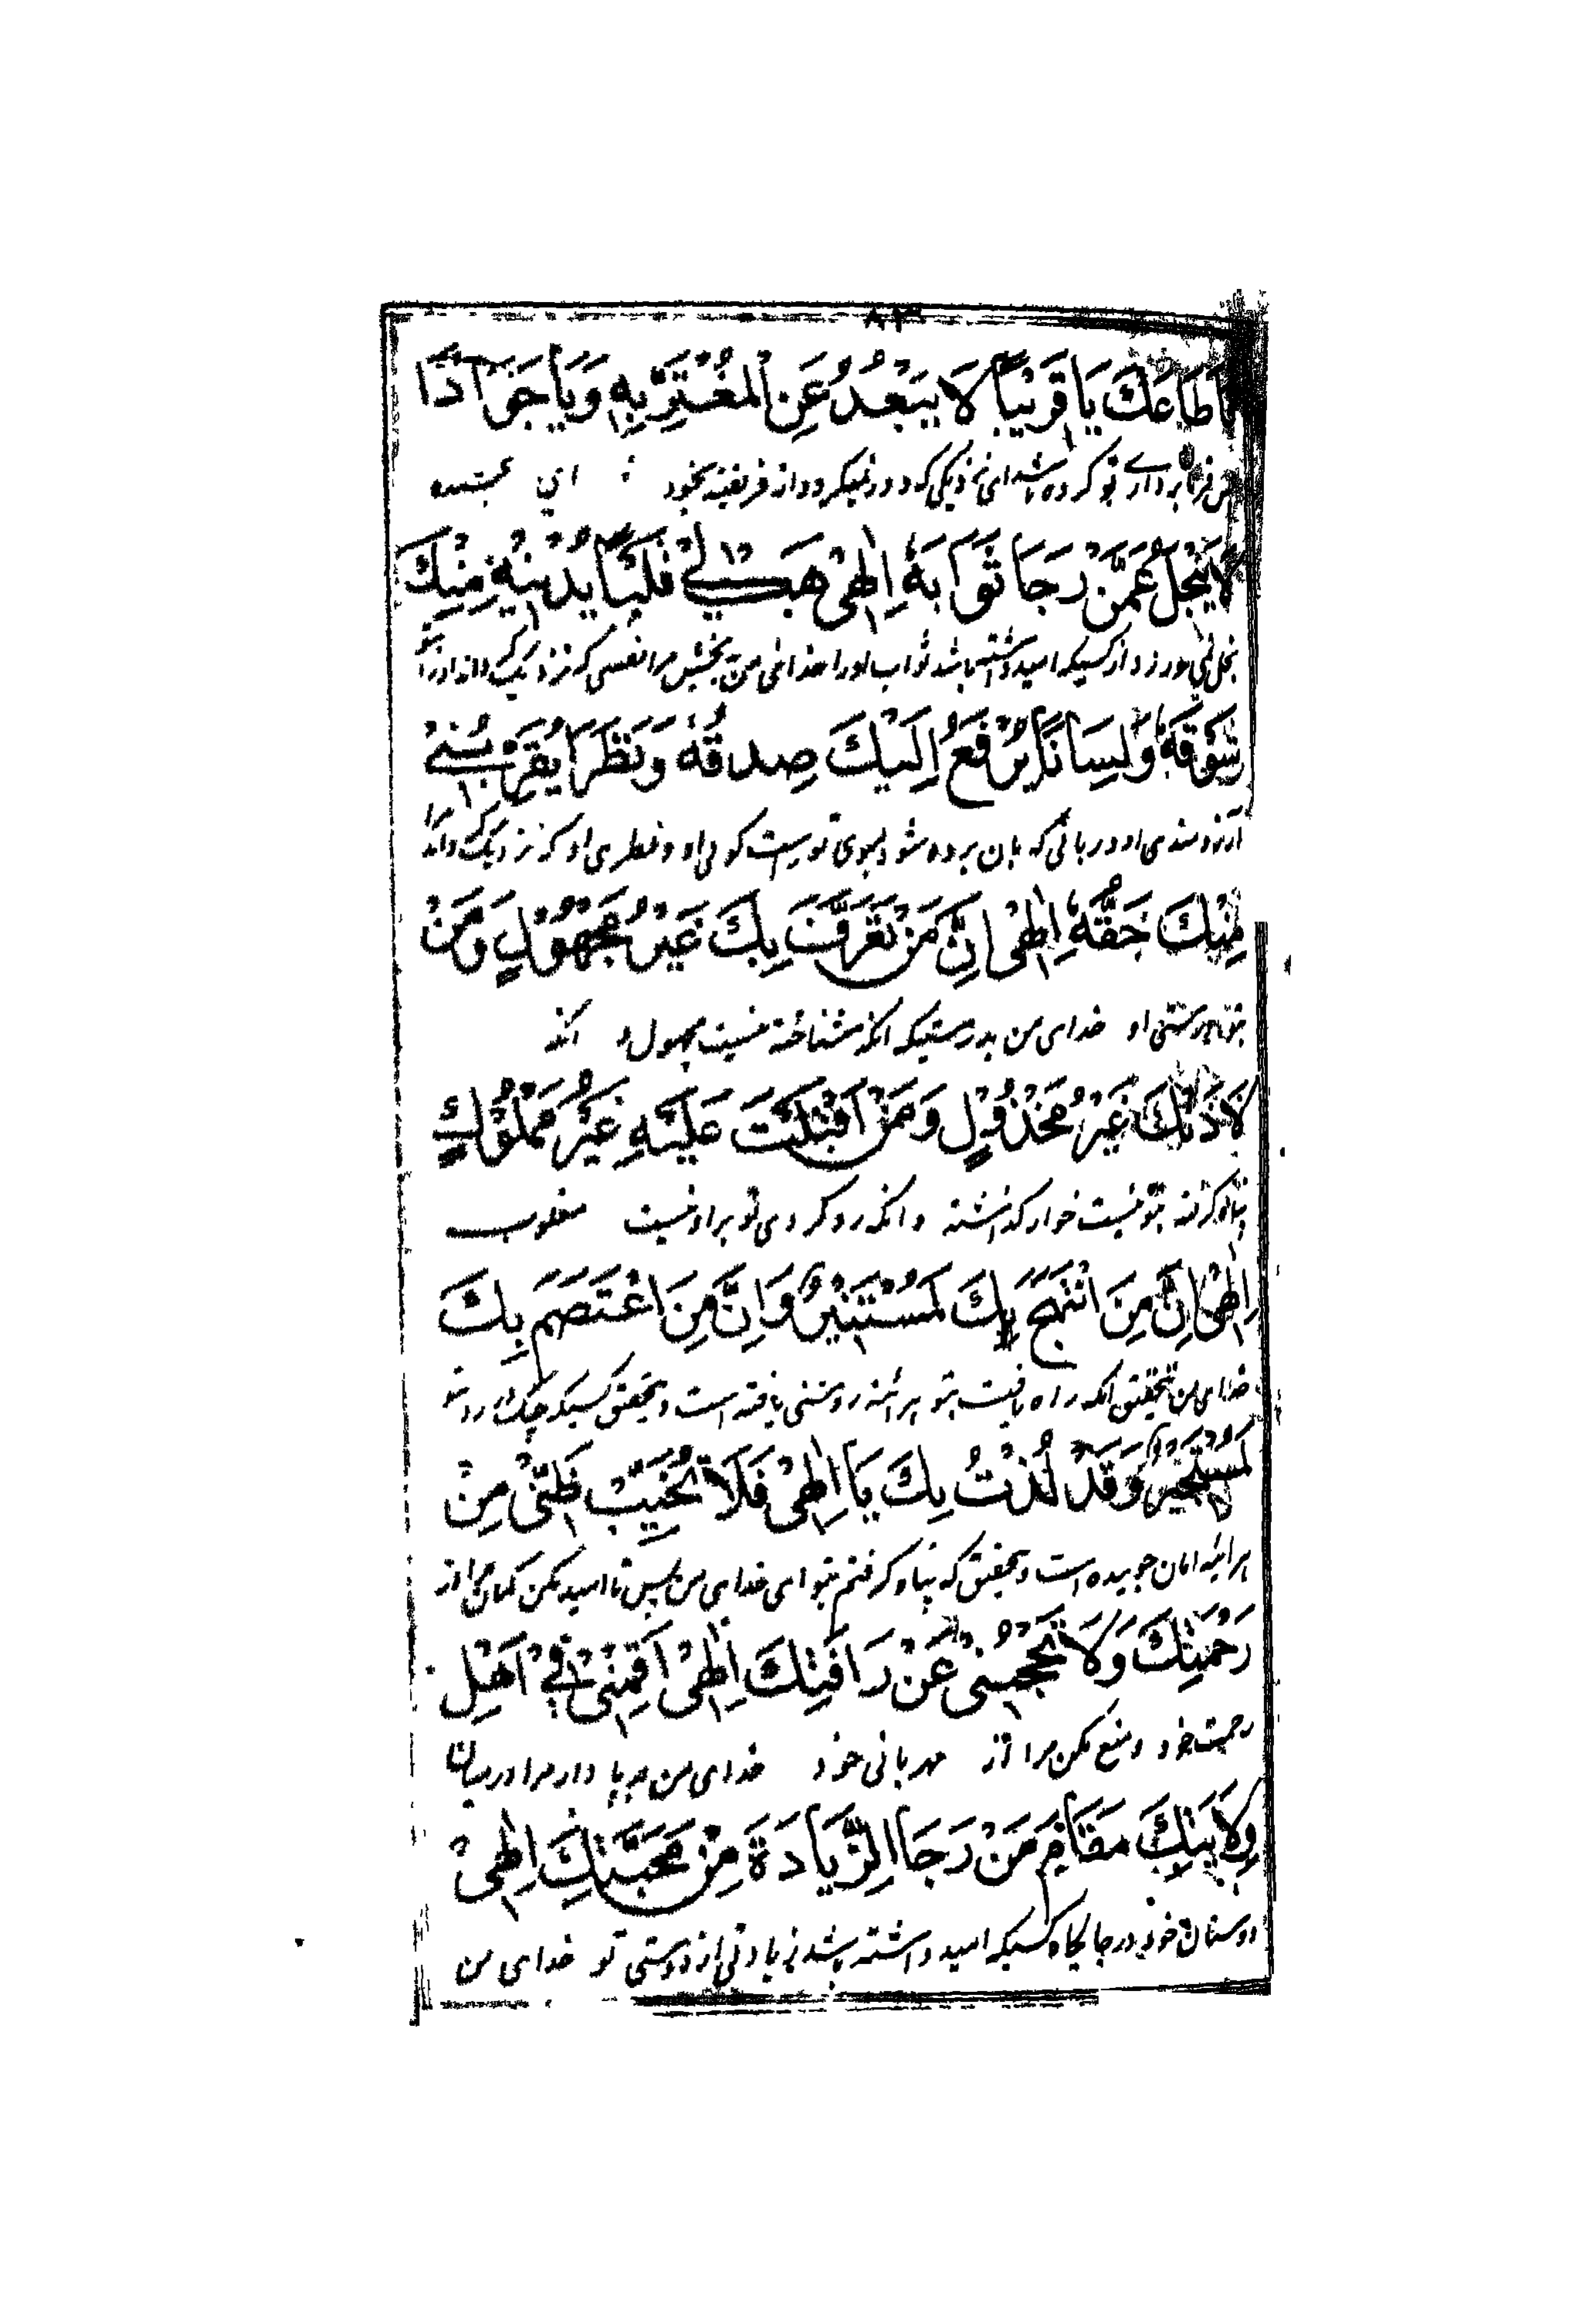 ۸۳
فَاَطَاعَكَ يَا قَرِيْبًا لَا يَبْعُدُ عَنِ الْمُغْتَرِّ بِهٖ وَيَا جَوَادًا
فرمانبرداری تو کرده باشد ای نزدیکی که دور نمیگردد از فریفته بخود ای
لَا يَبْخَلُ عَمَّنْ رَجَا ثَوَابَهٗ اِلٰهِیْ هَبْ لِیْ قَلْبًا يُدْنِيْهِ مِنْكَ
بخل نمی ورزد از کسیکه امید داشته باشد ثواب او را خدای من بخش مرا نفسی که نزدیک گرداند او را
شَوْقُهٗ وَلِسَانًا يُرْفَعُ اِلَيْكَ صِدْقُهٗ وَنَظَرًا يُقَرِّبُهٗ
آرزومندی او و زبانی که بان برده شود بسوی تو راست گوئی او و نظری او که نزدیک گرداند
مِنْكَ حَقُّهٗ اِلٰهِیْ اِنَّ مَنْ تَعَرَّفَ بِكَ غَيْرُ مَجْهُوْلٍ وَمَنْ
بتو درستی او خدای من بدرستیکه آنکه شناخته نیست مجهول و آنکه
لَاذَ بِكَ غَيْرُ مَخْذُوْلٍ وَمَنْ اَقْبَلْتَ عَلَيْهِ غَيْرُ مَمْلُوْكٍ
پناه گرفته بتو نیست خوار گذاشته و آنکه رو کردی تو بر او نیست مغلوب
اِلٰهِیْ اِنَّ مَنِ انْتَهَجَ بِكَ لَمُسْتَنِيْرٌ وَاِنَّ مَنِ اعْتَصَمَ بِكَ
خدای من بتحقیق آنکه راه یافت بتو هر آئینه روشنی یافته است و بتحقیق کسیکه چنگ زد بتو
لَمُسْتَجِيْرٌ وَقَدْ لُذْتُ بِكَ يَا اِلٰهِیْ فَلَا تُخَيِّبْ ظَنِّیْ مِنْ
هر آئینه امان جوینده است و بتحقیق که پناه گرفتم بتو ای خدای من پس نا امید مکن گمان مرا از
رَحْمَتِكَ وَلَا تَحْجُبْنِیْ عَنْ رَاْفَتِكَ اِلٰهِیْ اَقِمْنِیْ فِیْ اَهْلِ
رحمت خود و منع مکن مرا از مهربانی خود خدای من برپا دار مرا در میان
وِلَايَتِكَ مَقَامَ مَنْ رَجَا الزِّيَادَةَ مِنْ مَحَبَّتِكَ اِلٰهِیْ
دوستان خود در جایگاه کسیکه امید داشته باشد زیادتی از دوستی تو خدای من